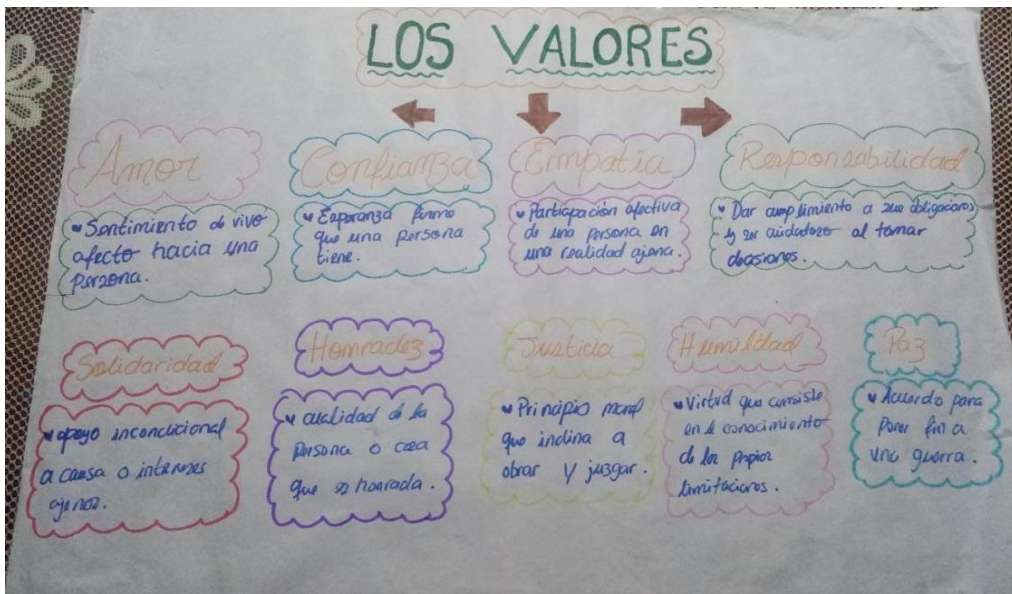 LOS VALORES
Amor
Sentimiento de vivo
afecto hacia una
persona.
Confianza
Esperanza firme
que una persona
tiene.
Empatia
Participación afectiva
de una persona en
una realidad ajena.
Responsabilidad
Dar cumplimiento a sus obligaciones
y ser cuidadoso al tomar
decisiones.
Solidaridad
apoyo incondicional
a causa o intereses
ajenos.
Honradez
cualidad de la
persona o cosa
que es honrada.
Justicia
Principio moral
que inclina a
obrar y juzgar.
Humildad
Virtud que consiste
en el conocimiento
de las propias
limitaciones.
Paz
Acuerdo para
poner fin a
una guerra.